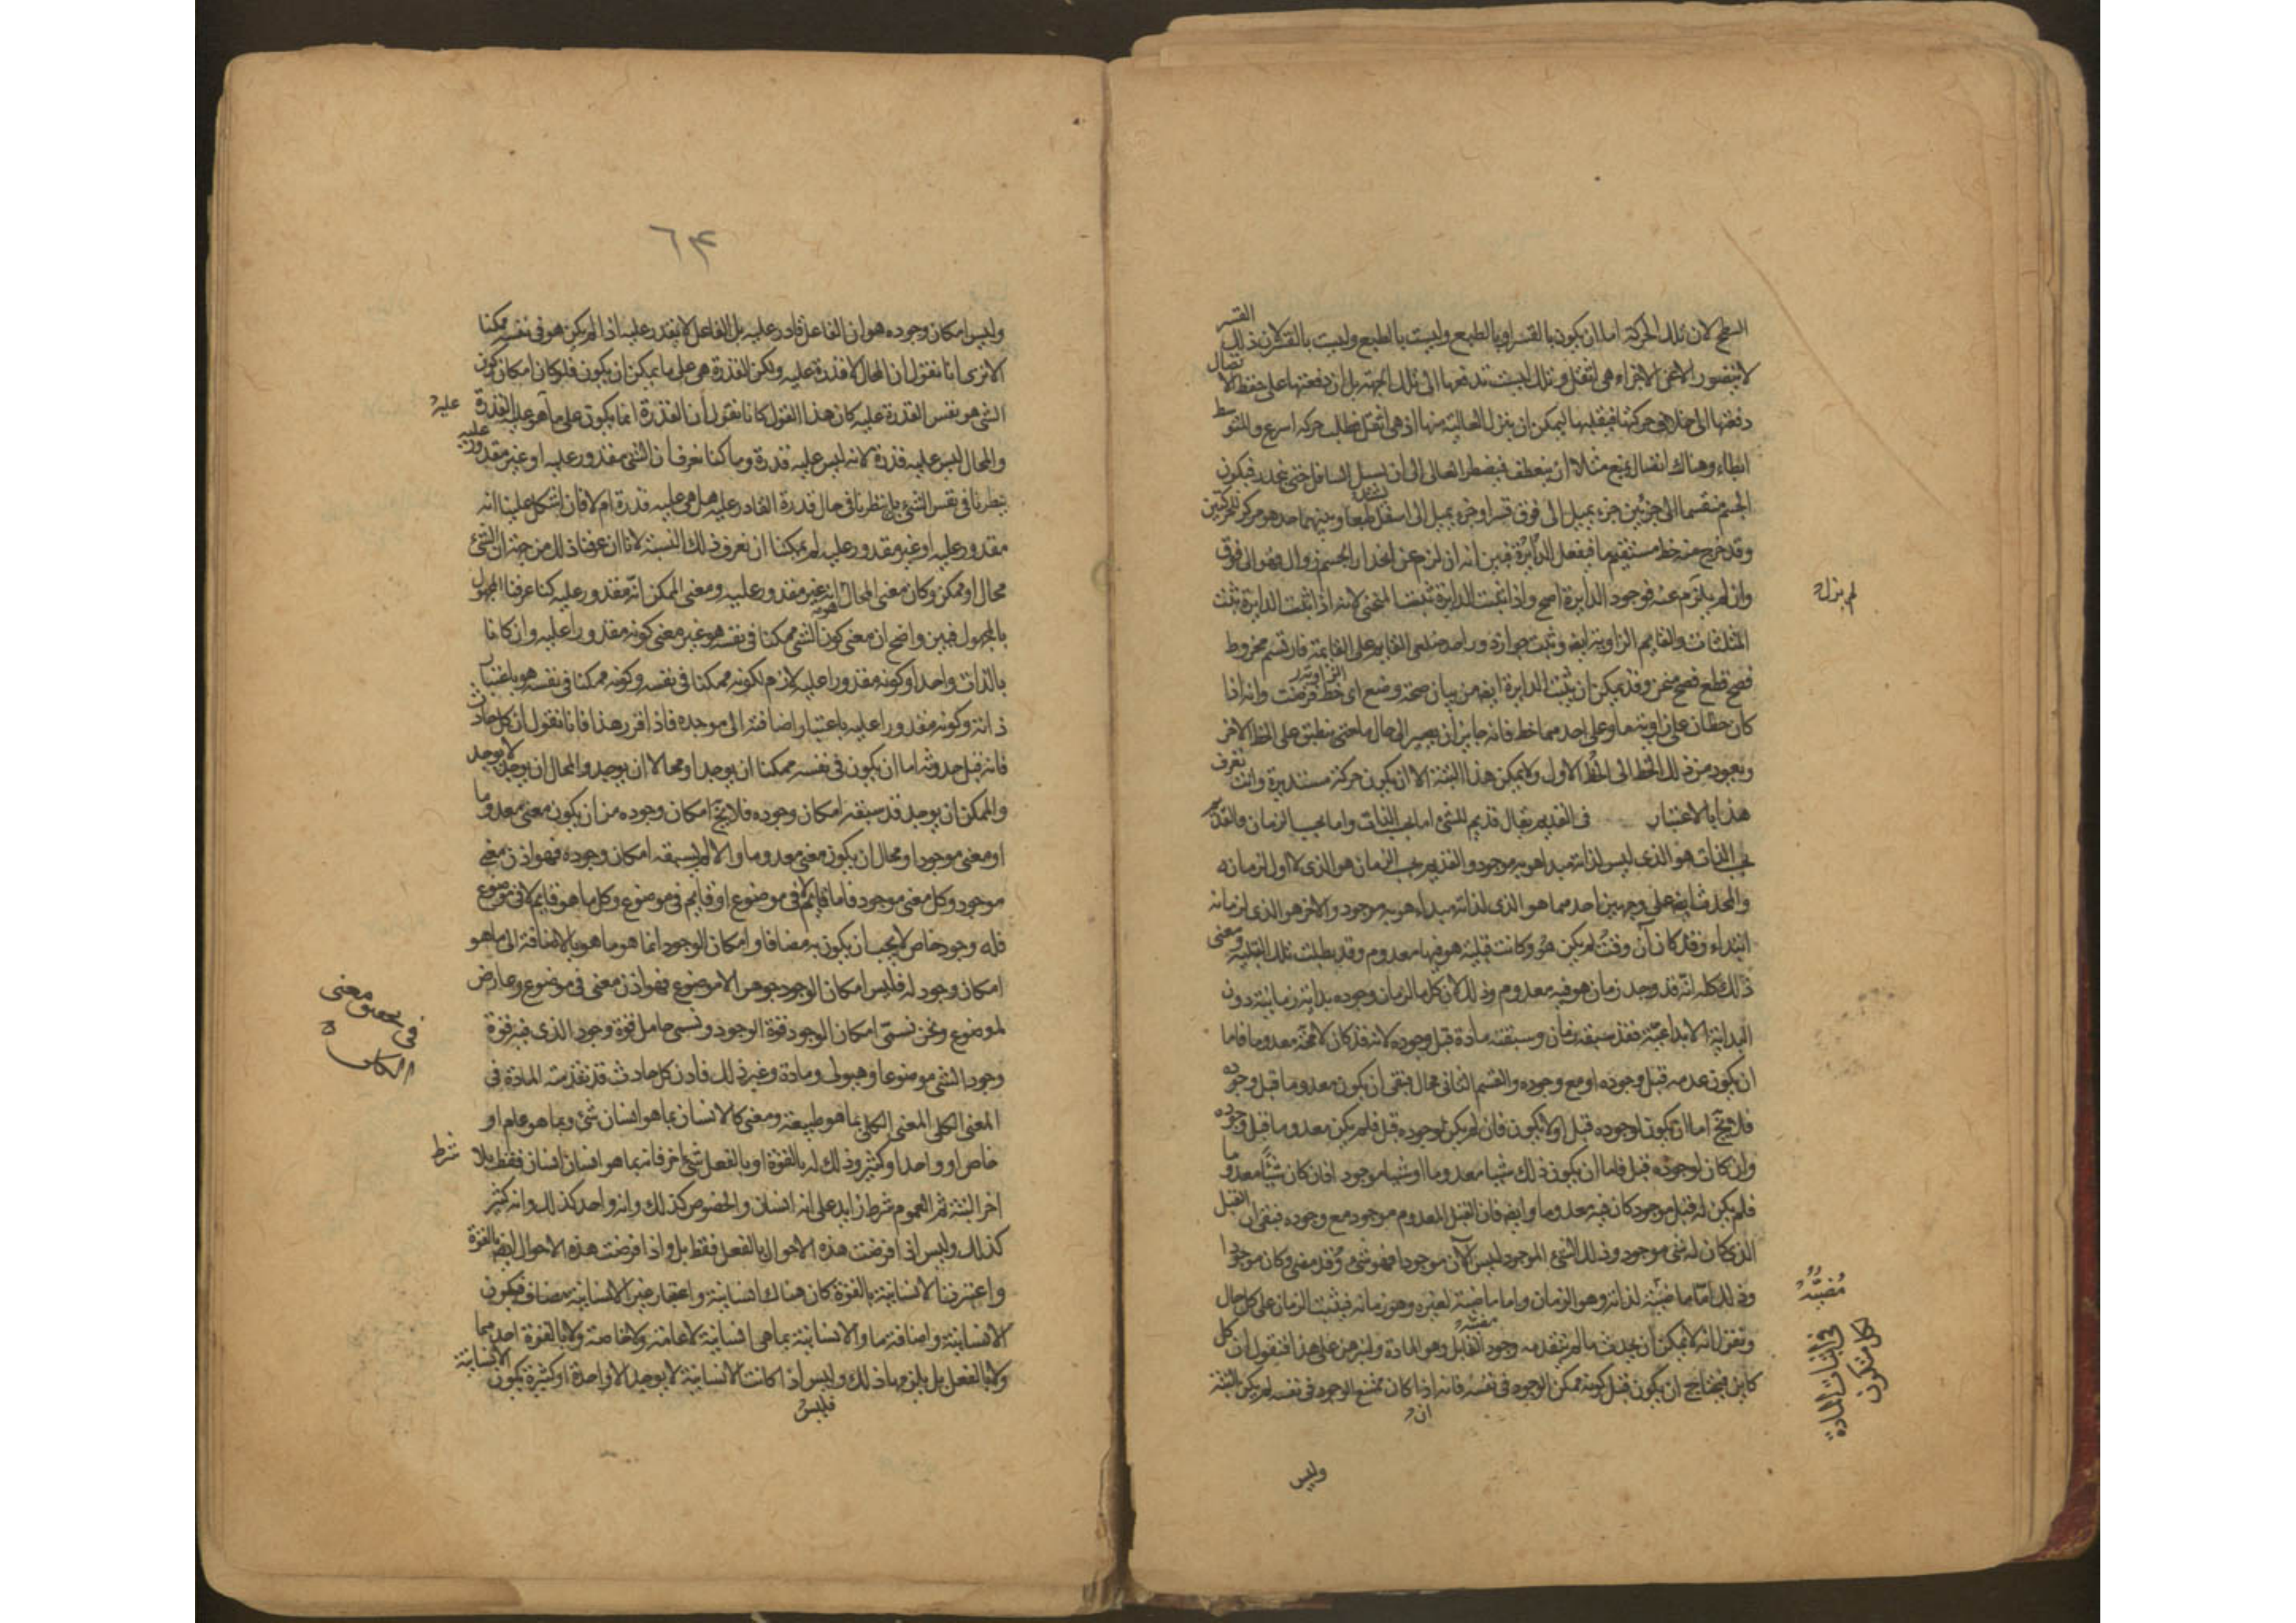 السطح لان تلك الحركة اما ان يكون بالقسر او بالطبع وليست بالطبع وليست بالقسر لان ذلك القسر
لا يتصور الا عن الاجزاء هى اثقل وتلك ليست تدفعها الى تلك الجهة بل ان دفعتها على حفظ الاتصال
دفعتها الى خلاف حركتها فيقلبها ليمكن ان ينزل العالية منها اذ هى اثقل فطلب حركة اسرع والمتوسط
ابطاء وهناك اتصال يمنع مثلا ان ينعطف فيضطر العالى الى ان يسيل السافل حتى ينحدر فيكون
الجسم منقسما الى جزئين جزء يميل الى فوق قسرا وجزء يميل الى اسفل طبعا وبينهما حد هو مركز للحركتين
وقد خرج منه خط مستقيم ما فيفعل الدائرة فبين انه ان لزم عن انحدار الجسم زوال فهو الى فوق
وان لم يلزم عنه فوجود الدايرة اصح واذا ثبت الدايرة ثبت المنحنى لانه اذا ثبت الدايرة ثبت
لم يزل
المثلثات والقايم الزاوية ايضا وثبت جواز دور احد ضلعى القايمة على القايمة فارتسم مخروط
فصح قطع فصح منحن وقد يمكن ان يثبت الدايرة ايضا من بيان صحة وضع اى خط فرضت وانه اذا
كان خطان على زاوية معا وعلى احدهما خط فانه جايز ان يصير الى حال ما حتى ينطبق على الخط الاخر
ويعود من ذلك الخط الى الخط الاول ولا يمكن هذا البتة الا ان يكون حركة مستديرة وانت تعرف
هذا بالاعتبار فى القديم يقال قديم للشئ اما بحسب الذات واما بحسب الزمان والقديم
بحسب الذات هو الذى ليس لذاته مبدا هو به موجود والقديم بحسب الزمان هو الذى لا اول لزمانه
والمحدث ايضا على وجهين احدهما هو الذى لذاته مبداء هو به موجود والاخر هو الذى لزمانه
ابتداء وقد كان آن وقت لم يكن هو وكانت قبلية هو فيها معدوم وقد بطلت تلك القبلية ومعنى
ذلك كله انه قد وجد زمان هو فيه معدوم وذلك لان كل ما لزمان وجوده بداية زمانية دون
البداية الابداعية فقد سبقه زمان وسبقته مادة قبل وجوده لانه قد كان لا محة معدوما فاما
ان يكون عدمه قبل وجوده او مع وجوده والقسم الثانى محال فبقى ان يكون معدوما قبل وجوده
فلا يخ اما ان يكون لوجوده قبل او لا يكون فان لم يكن لوجوده قبل فلم يكن معدوما قبل وجوده
وان كان لوجوده قبل فاما ان يكون ذلك شيا معدوما او شيا موجودا فان كان شيئا معدوما
فلم يكن له قبل موجود كان فيه معدوما وايضا فان القبل المعدوم موجود مع وجوده فبقى ان القبل
الذى كان له شى موجود وذلك الشئ الموجود ليس الآن موجودا فهو شئ وقد مضى وكان موجودا
وذلك اما ماضية لذاته وهو الزمان واما ماضية لغيره وهو زمانه فيثبت الزمان على كل حال
مضيه
ونقول انه لا يمكن ان يحدث ما لم يتقدمه وجود القابل وهو المادة ولنبرهن على هذا فنقول ان كل
فى اثبات المادة
لكل متكون
كاين فيحتاج ان يكون قبل كونه ممكن الوجود فى نفسه فانه اذا كان ممتنع الوجود فى نفسه لم يكن البتة
وليس
٦٣
وليس امكان وجوده هو ان الفاعل قادر عليه بل الفاعل لا يقدر عليه اذا لم يكن هو فى نفسه ممكنا
الا ترى انا نقول ان المحال لا قدرة عليه ولكن القدرة هى على ما يمكن ان يكون فلو كان امكان كون
الشى هو نفس القدرة عليه كان هذا القول كانا نقول ان القدرة انما يكون على ما هو عليه القدرة
عليه
والمحال ليس عليه قدرة لانه ليس عليه قدرة وما كنا نعرف ان الشى مقدور عليه او غير مقدور عليه
بنظرنا فى نفس الشئ بل بنظرنا فى حال قدرة القادر عليه هل هى عليه قدرة ام لا فان اشكل علينا انه
مقدور عليه او غير مقدور عليه لم يمكنا ان نعرف ذلك البتة لانا ان عرفنا ذلك من جهة ان الشئ
محال او ممكن وكان معنى المحال انه غير مقدور عليه ومعنى الممكن انه مقدور عليه كنا عرفنا المجهول
بالمجهول فبين واضح ان معنى كون الشى ممكنا فى نفسه هو غير معنى كونه مقدورا عليه وان كانا
بالذات واحدا وكونه مقدورا عليه لازم لكونه ممكنا فى نفسه وكونه ممكنا فى نفسه هو باعتبار
ذاته وكونه مقدورا عليه باعتبار اضافته الى موجده فاذا تقرر هذا فانا نقول ان كل حادث
فانه قبل حدوثه اما ان يكون فى نفسه ممكنا ان يوجد او محالا ان يوجد والمحال ان يوجد لا يوجد
والممكن ان يوجد قد سبقه امكان وجوده فلا يخ امكان وجوده من ان يكون معنى معدوما
او معنى موجودا ومحال ان يكون معنى معدوما والا لم يسبقه امكان وجوده فهو اذن معنى
موجود وكل معنى موجود فاما قايم لا فى موضوع او قايم فى موضوع وكل ما هو قايم لا فى موضوع
فله وجود خاص لا يجب ان يكون به مضافا وامكان الوجود انما هو ما هو بالاضافة الى ما هو
امكان وجود له فليس امكان الوجود جوهرا لا موضوع فهو اذن معنى فى موضوع وعارض
لموضوع ونحن نسمى امكان الوجود قوة الوجود ونسمى حامل قوة وجود الذى فيه قوة
فى تحقيق معنى
الكلى
وجود الشى موضوعا وهيولى ومادة وغير ذلك فاذن كل حادث قد تقدمته المادة فى
المعنى الكلى المعنى الكلى بما هو طبيعة ومعنى كالانسان بما هو انسان شئ وبما هو عام او
خاص او واحد او كثير وذلك له بالقوة او بالفعل شئ اخر فانه بما هو انسان انسان فقط بلا شرط
اخر البتة ثم العموم شرط زايد على انه انسان والخصوص كذلك وانه واحد كذلك وانه كثير
كذلك وليس اذا فرضت هذه الاحوال بالفعل فقط بل واذا فرضت هذه الاحوال ايضا بالقوة
واعتبرت الانسانية بالقوة كان هناك انسانية واعتبار غير الانسانية مضاف فيكون
الانسانية واضافة ما والانسانية بما هى انسانية لا عامة ولا خاصة ولا بالقوة احدهما
ولا بالفعل بل يلزمها ذلك وليس اذا كانت الانسانية لا يوجد الا واحدة او كثيرة يكون الانسانية
فليس